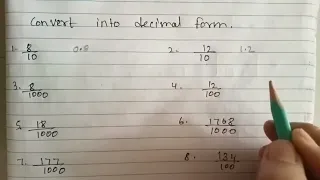 Convert into decimal form.
1. 8/10 0.8 2. 12/10 1.2
3. 8/1000 4. 12/100
5. 18/1000 6. 1768/1000
7. 177/1000 8. 134/100